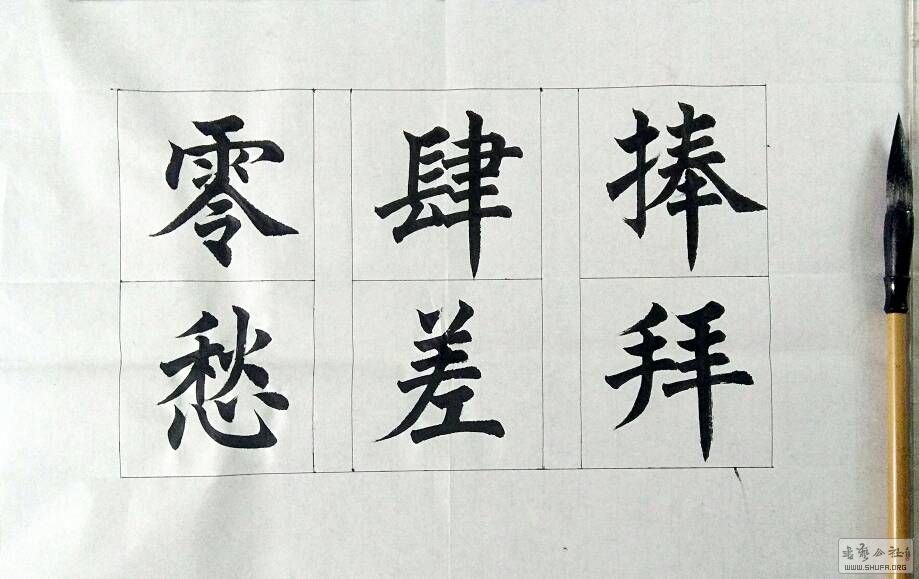 捧拜
肆差
零愁
书藝公社
WWW.SHUFA.ORG